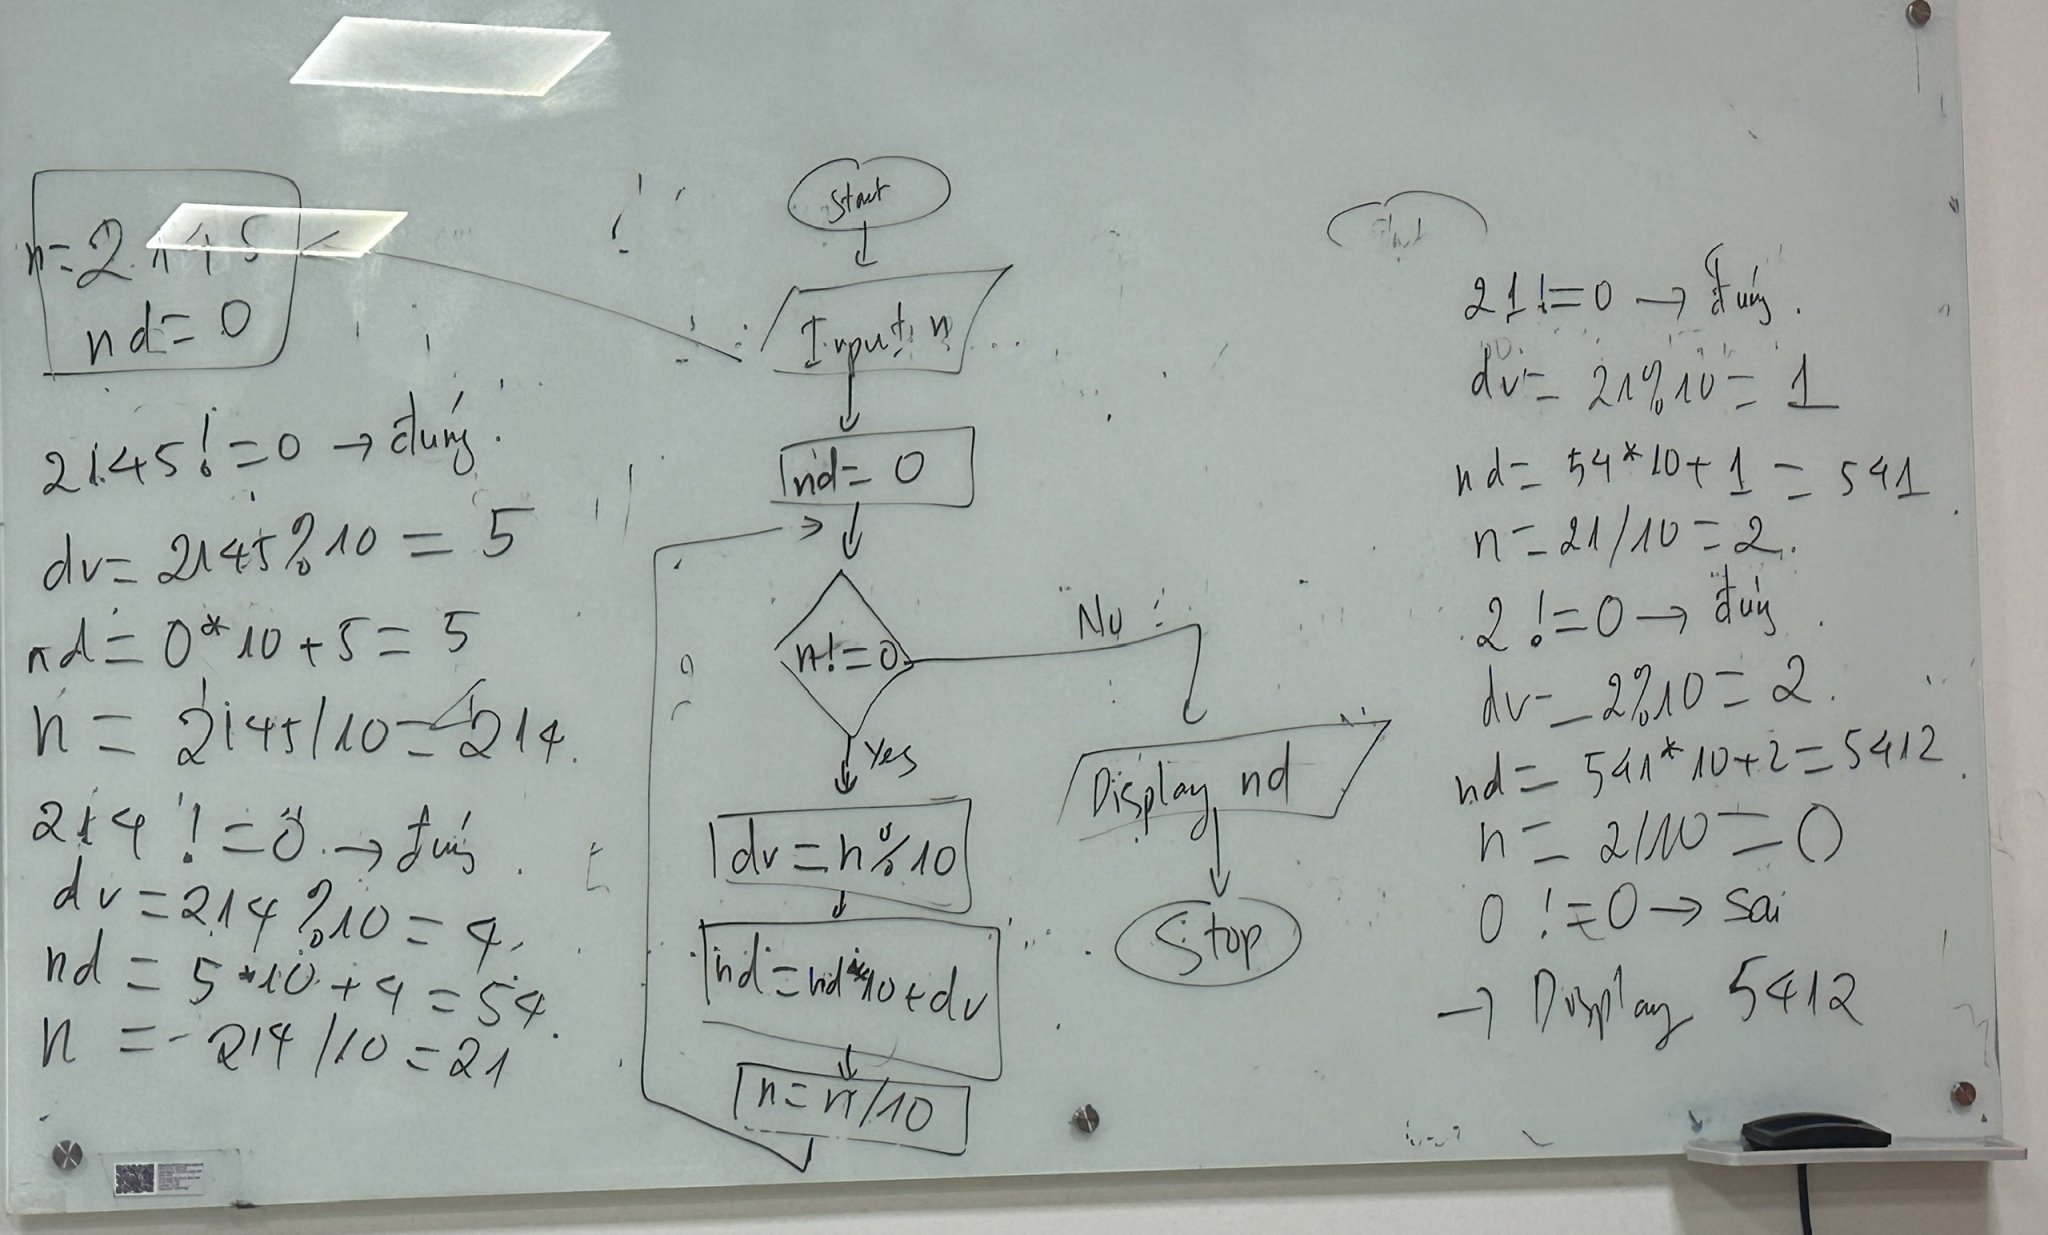 n = 2145
nd = 0
2145 != 0 → đúng.
dv = 2145 % 10 = 5
nd = 0 * 10 + 5 = 5
n = 2145 / 10 = 214.
214 != 0 → đúng
dv = 214 % 10 = 4
nd = 5 * 10 + 4 = 54
n = 214 / 10 = 21
Start
Input n
nd = 0
n != 0
No
Yes
dv = n % 10
nd = nd * 10 + dv
n = n / 10
Display nd
Stop
Start
21 != 0 → đúng.
dv = 21 % 10 = 1
nd = 54 * 10 + 1 = 541
n = 21 / 10 = 2.
2 != 0 → đúng
dv = 2 % 10 = 2.
nd = 541 * 10 + 2 = 5412
n = 2 / 10 = 0
0 != 0 → sai
→ Display 5412